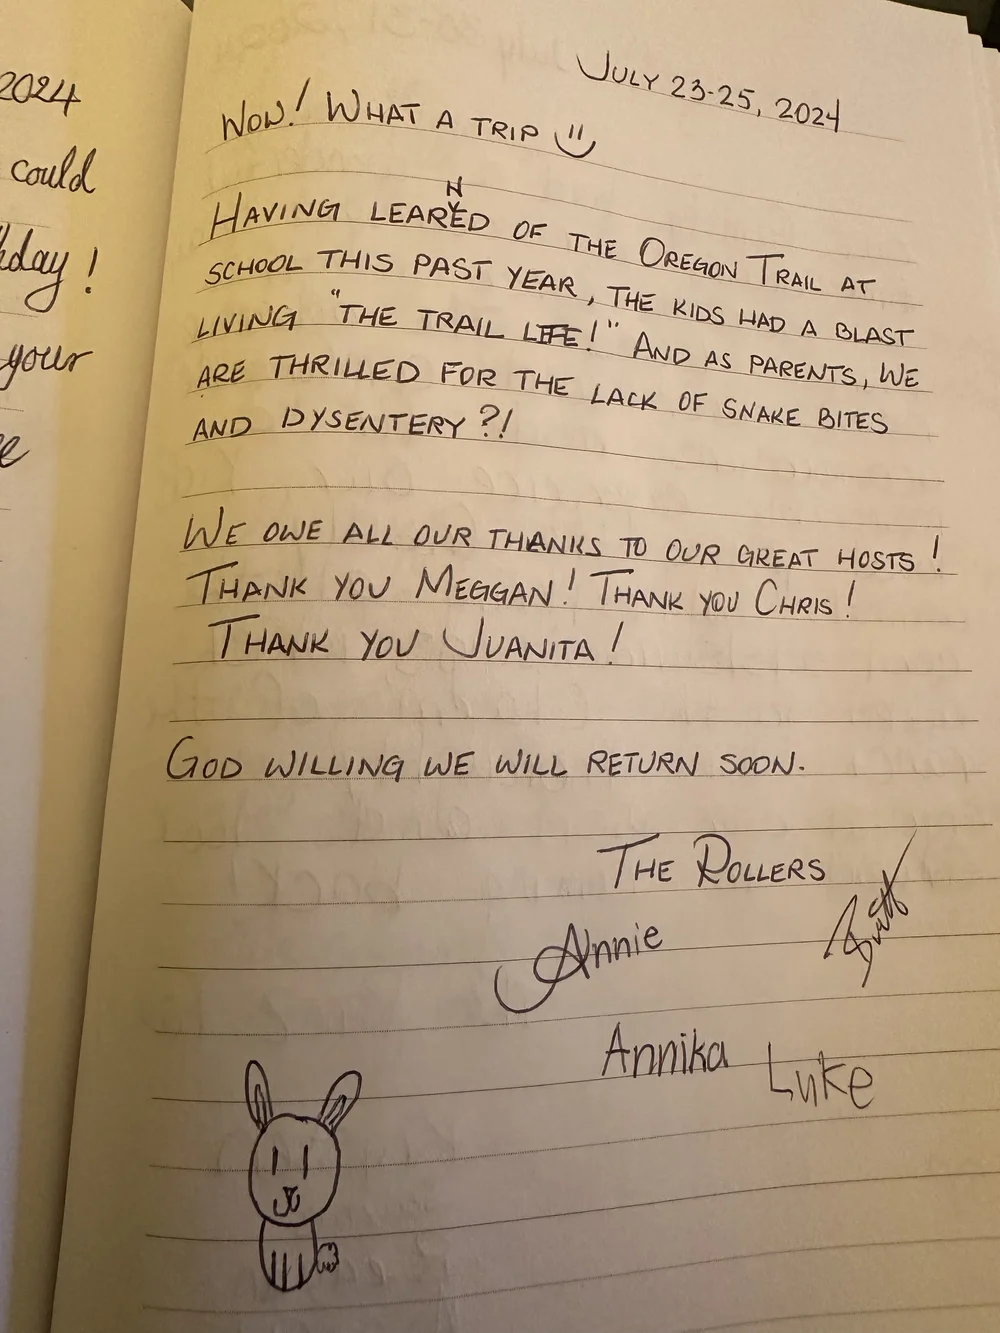 2024
could
day!
your
JULY 23-25, 2024
WOW! WHAT A TRIP
HAVING LEARNED OF THE OREGON TRAIL AT
SCHOOL THIS PAST YEAR, THE KIDS HAD A BLAST
LIVING "THE TRAIL LIFE!" AND AS PARENTS, WE
ARE THRILLED FOR THE LACK OF SNAKE BITES
AND DYSENTERY?!
WE OWE ALL OUR THANKS TO OUR GREAT HOSTS!
THANK YOU MEGGAN! THANK YOU CHRIS!
THANK YOU JUANITA!
GOD WILLING WE WILL RETURN SOON.
THE ROLLERS
Annie
Annika Luke